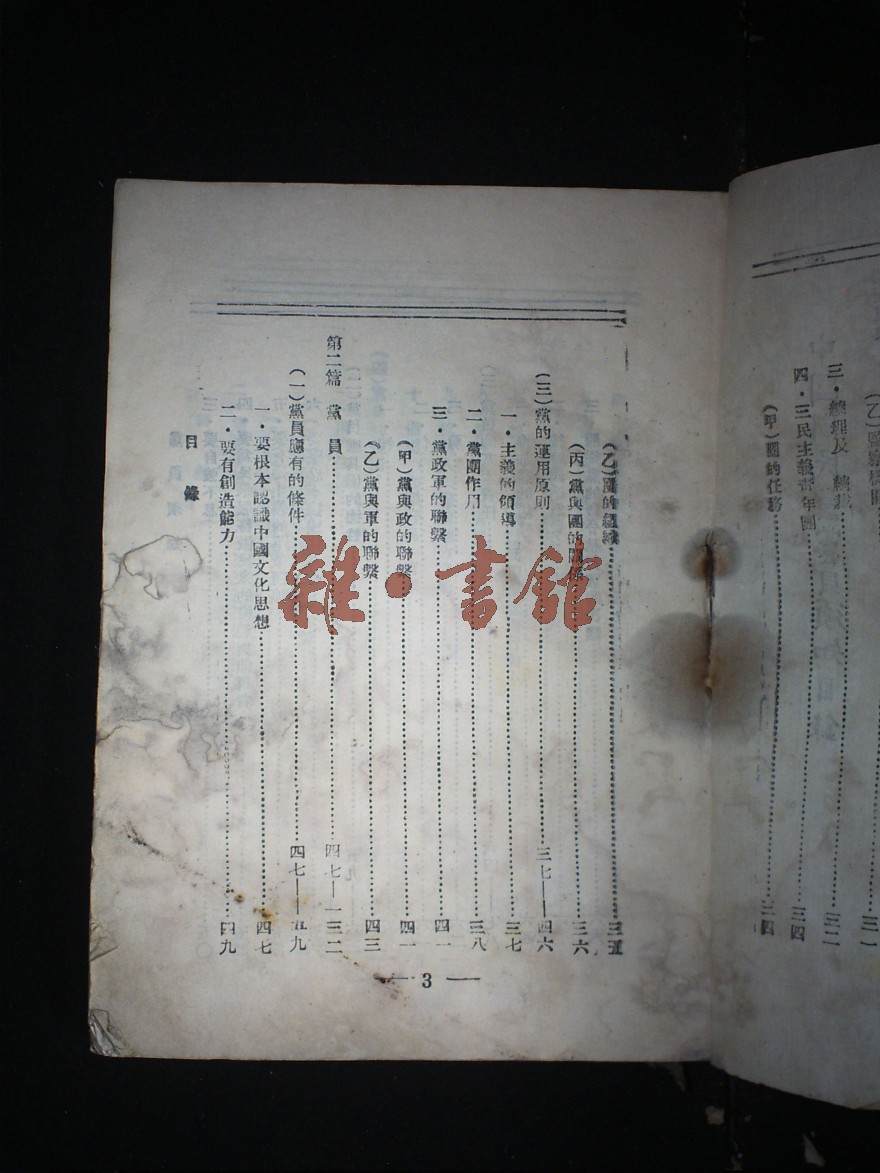 三・總理及 總裁……三二
四・三民主義青年團……三四
(甲)團的任務……三四
(乙)團的組織……三五
(丙)黨與團的關係……三六
(三)黨的運用原則……三七——四六
一・主義的領導……三七
二・黨團作用……三八
三・黨政軍的聯繫……四一
(甲)黨與政的聯繫……四一
(乙)黨與軍的聯繫……四三
第二篇 黨 員……四七——一三二
(一)黨員應有的條件……四七——五九
一・要根本認識中國文化思想……四七
二・要有創造能力……四九
目 錄
— 3 —
雜・書館